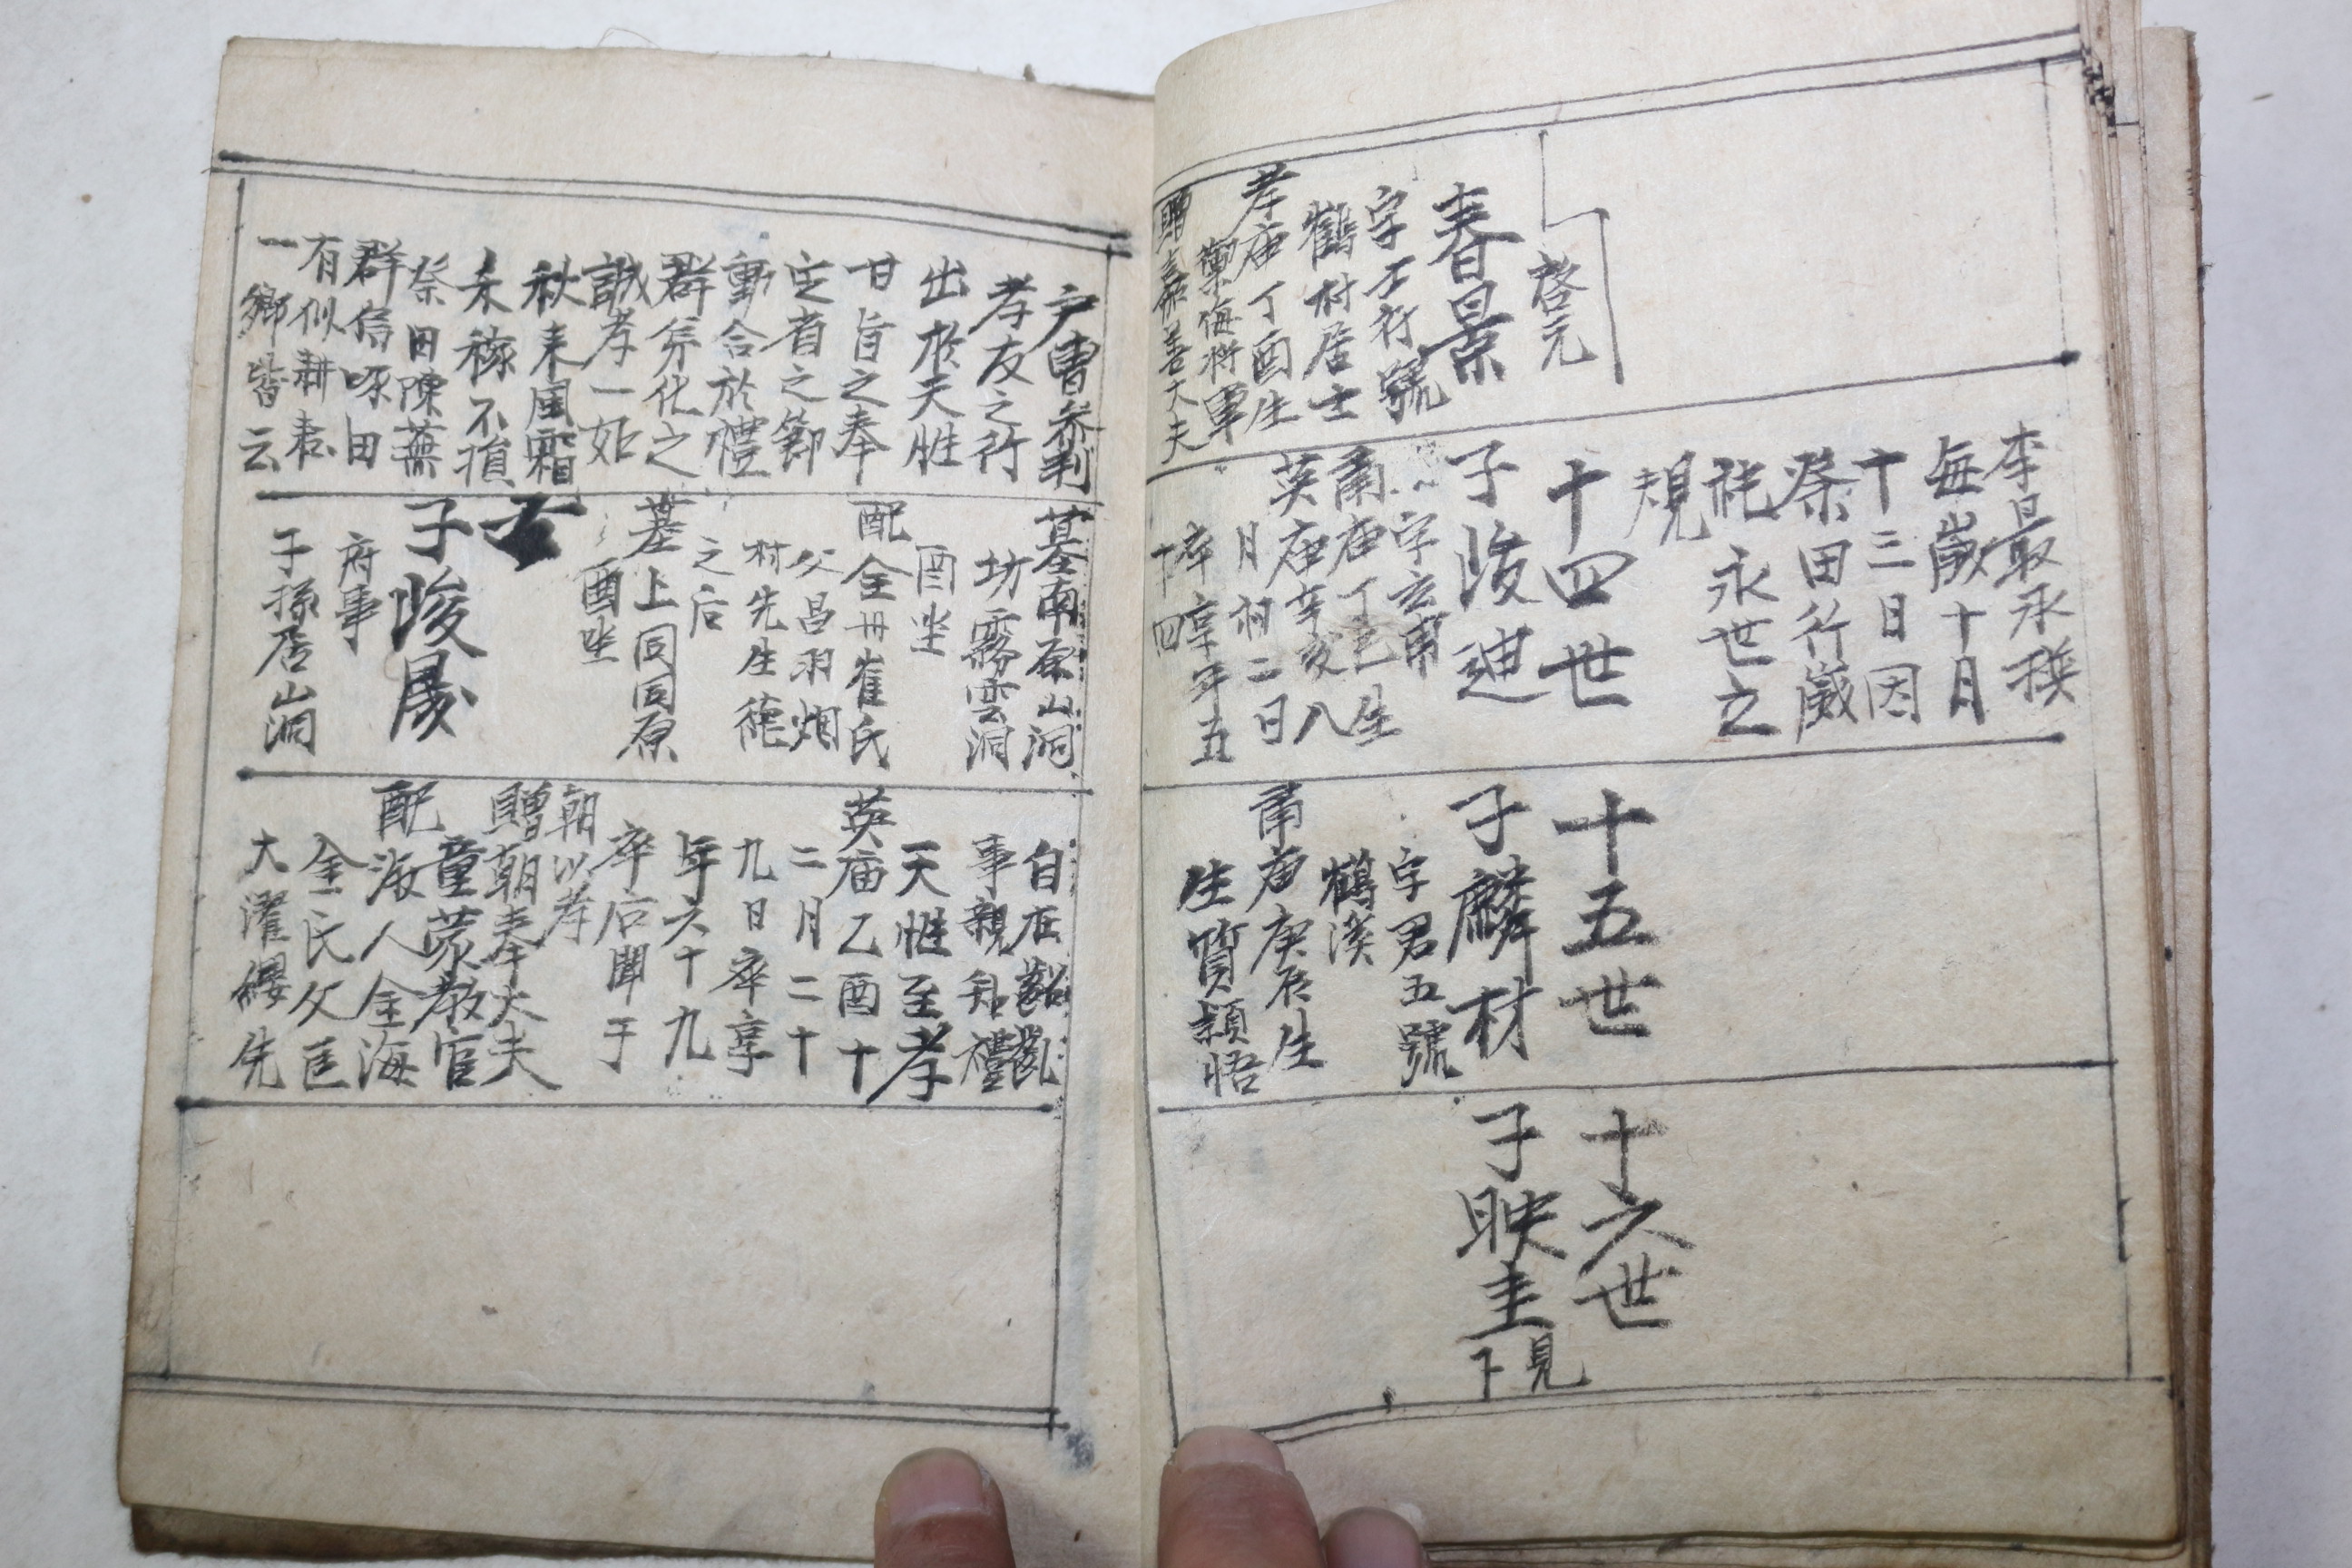 啓元
春景
字石行號
鶴村居士
孝庙丁酉生
禦侮將軍
贈嘉善大夫
李最永稧
每歲十月
十三日因
祭田行歲
祀永世之
規
十四世
子浚廸
字云甫
肅庙丁巳生
英庙辛亥八
月初二日
卒享年五
十四
十五世
子麟材
字君五號
鶴溪
肅庙庚辰生
生質穎悟
十六世
子映圭
見
下
户曺叅判
孝友之行
出於天性
甘旨之奉
定省之節
動合於禮
群弟化之
誠孝一如
秋来風霜
禾稼不損
祭田陳蕪
群烏啄田
有似耕耘
一鄉皆云
墓南原山洞
坊霧雲洞
酉坐
配全州崔氏
父昌羽烟
村先生德
之后
墓上同同原
酉坐
子浚晟
府事
子孫居山洞
自在齠齓
事親知禮
天性至孝
英庙乙酉十
二月二十
九日卒享
年六十九
卒后聞于
朝以孝
贈朝奉大夫
童蒙教官
配海人金海
金氏父匡
大濯纓先